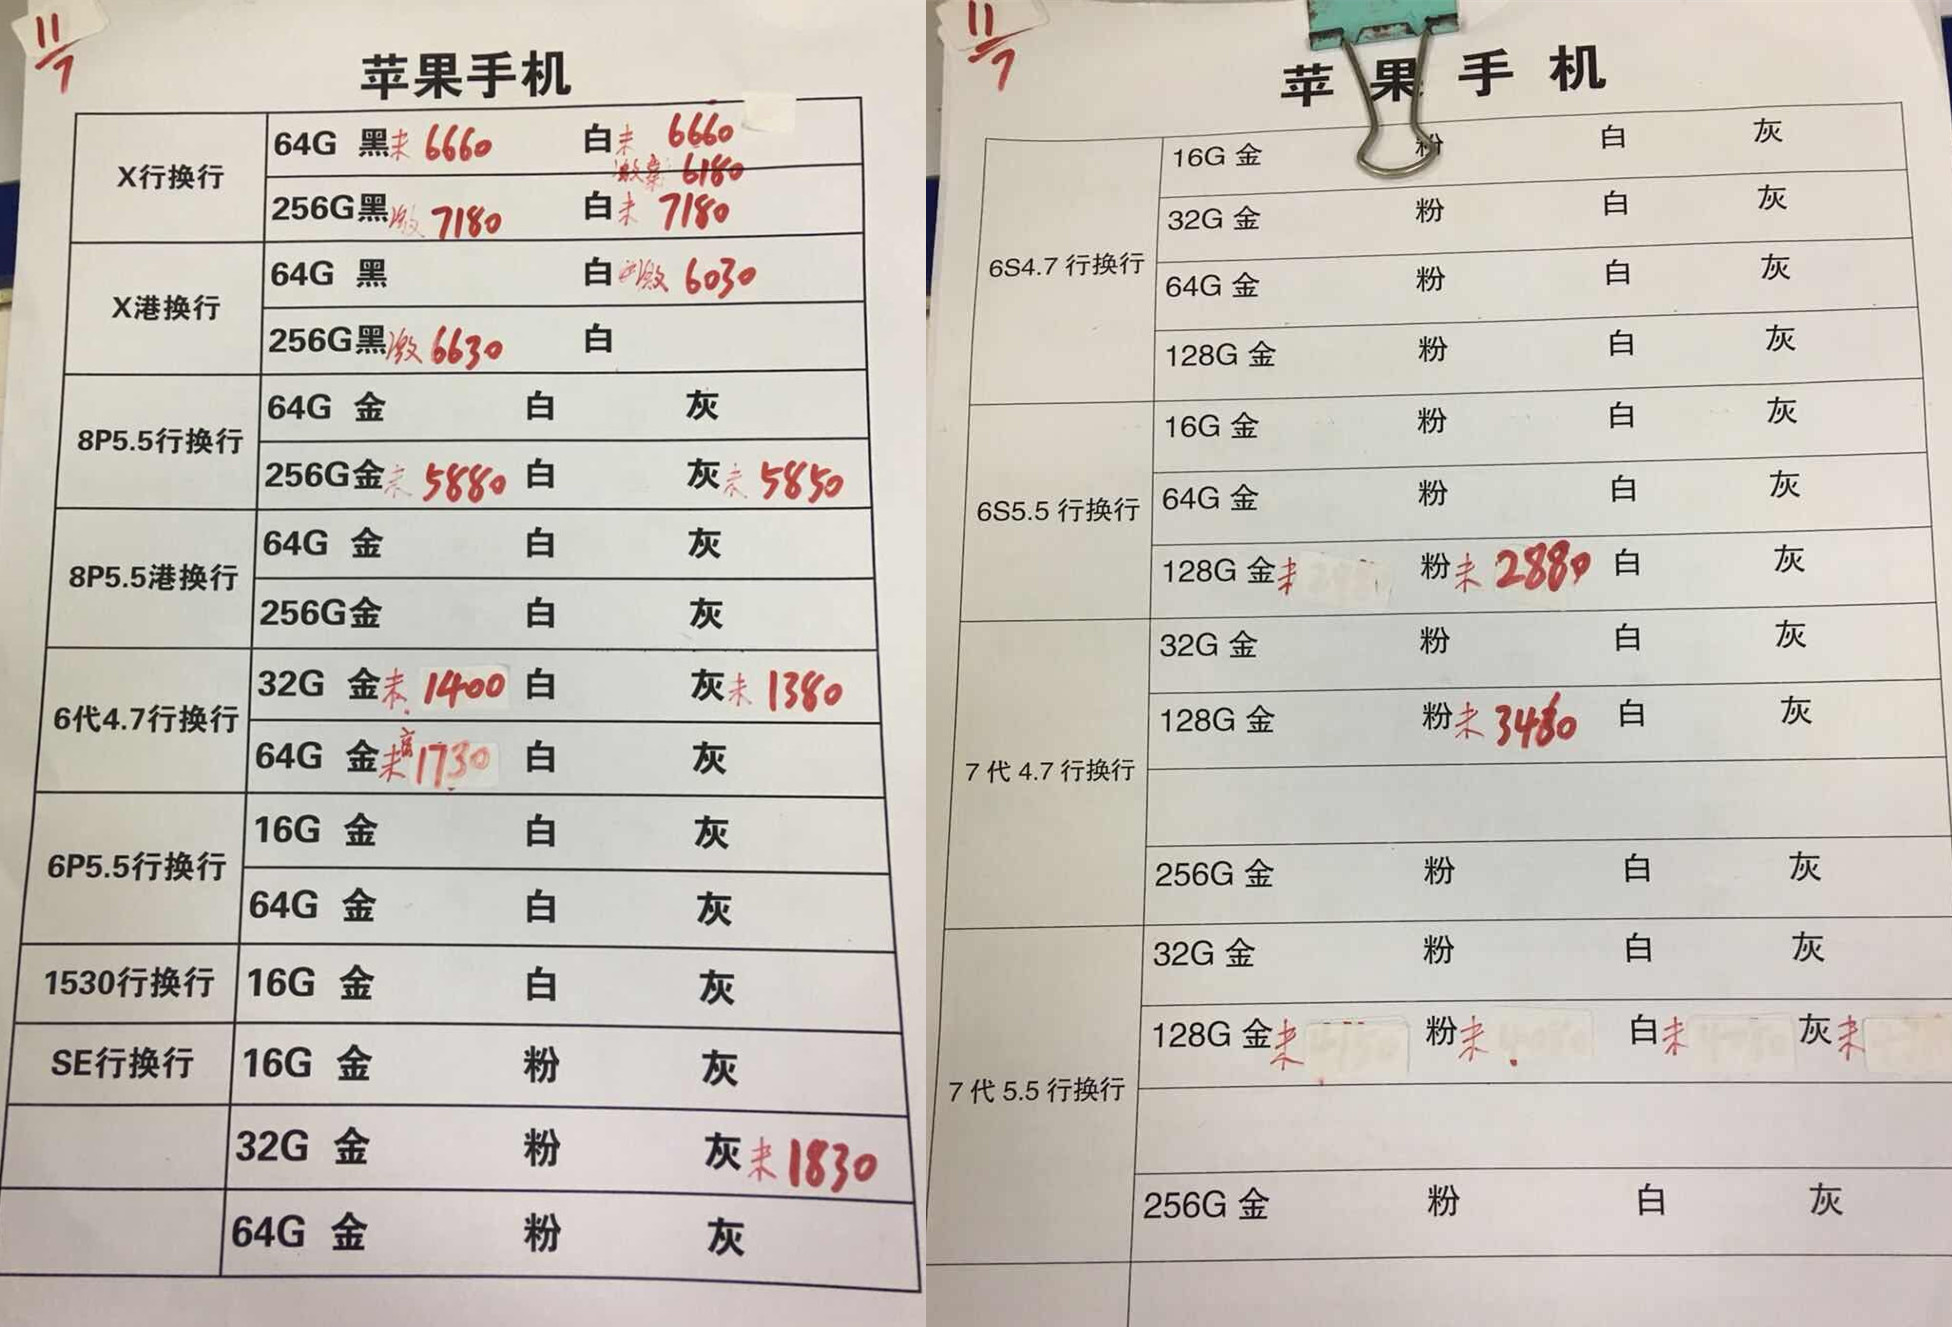 11/7
苹果手机
X行换行
64G 黑未 6660 白未 6660
激 6180
256G黑激 7180 白未 7180
X港换行
64G 黑 白激 6030
256G黑激 6630 白
8P5.5行换行
64G 金 白 灰
256G金未 5880 白 灰未 5850
8P5.5港换行
64G 金 白 灰
256G金 白 灰
6代4.7行换行
32G 金未 1400 白 灰未 1380
64G 金未 1730 白 灰
6P5.5行换行
16G 金 白 灰
64G 金 白 灰
1530行换行
16G 金 白 灰
SE行换行
16G 金 粉 灰
32G 金 粉 灰未 1830
64G 金 粉 灰
11/7
苹果手机
6S4.7 行换行
16G 金 粉 白 灰
32G 金 粉 白 灰
64G 金 粉 白 灰
128G 金 粉 白 灰
6S5.5 行换行
16G 金 粉 白 灰
64G 金 粉 白 灰
128G 金未 粉未 2880 白 灰
7 代 4.7 行换行
32G 金 粉 白 灰
128G 金 粉未 3480 白 灰
256G 金 粉 白 灰
7 代 5.5 行换行
32G 金 粉 白 灰
128G 金未 粉未 白未 灰未
256G 金 粉 白 灰